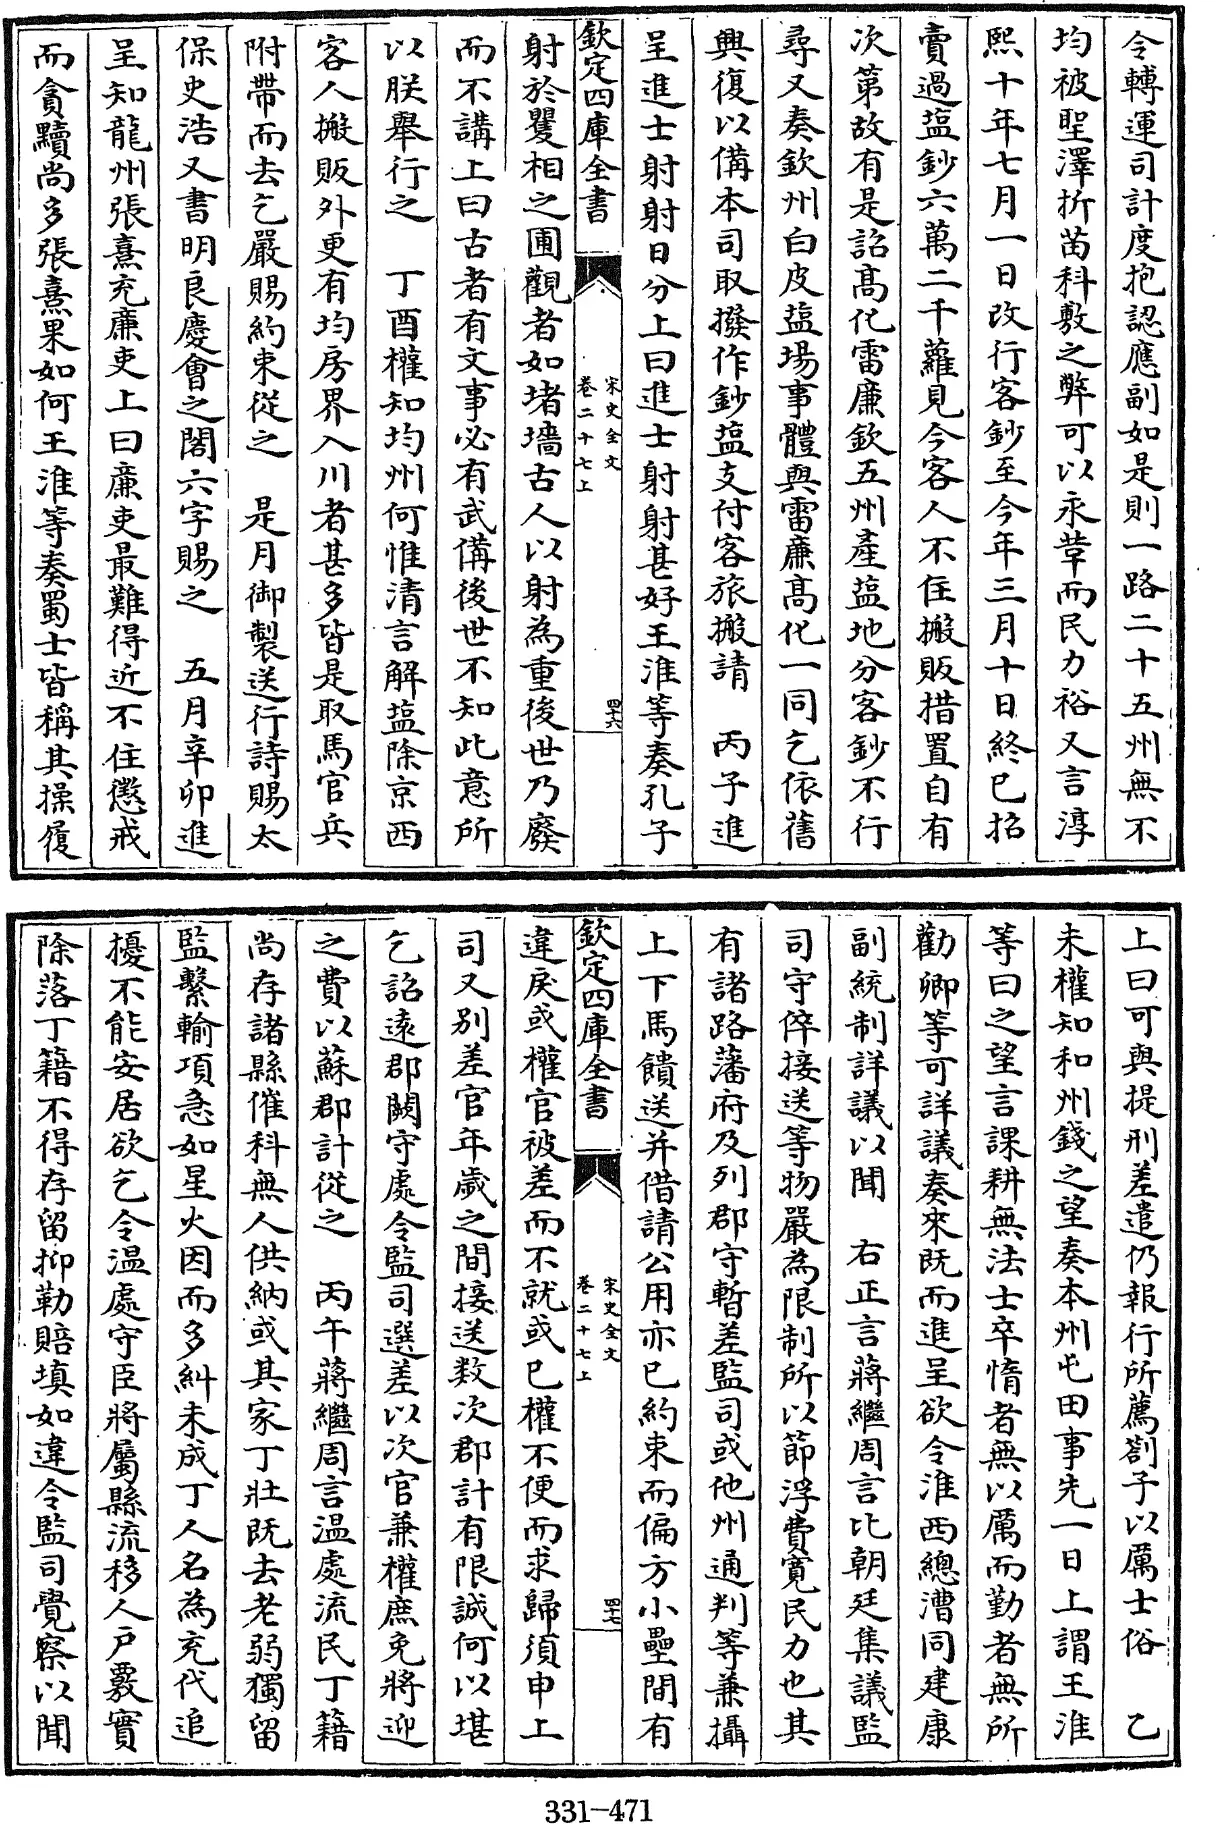 令轉運司計度抱認應副如是則一路二十五州無不
均被聖澤折苗科敷之弊可以永革而民力裕又言淳
熙十年七月一日改行客鈔至今年三月十日終已招
賣過塩鈔六萬二千籮見今客人不住搬販措置自有
次第故有是詔高化雷廉欽五州產塩地分客鈔不行
尋又奏欽州白皮塩場事體與雷廉高化一同乞依舊
興復以備本司取撥作鈔塩支付客旅搬請　丙子進
呈進士射射日分上曰進士射射甚好王淮等奏孔子
欽定四庫全書
宋史全文
卷二十七上
四十六
射於矍相之圃觀者如堵墻古人以射為重後世乃廢
而不講上曰古者有文事必有武備後世不知此意所
以朕舉行之　丁酉權知均州何惟清言解塩除京西
客人搬販外更有均房界入川者甚多皆是取馬官兵
附帶而去乞嚴賜約束從之　是月御製送行詩賜太
保史浩又書明良慶會之閣六字賜之　五月辛卯進
呈知龍州張熹充廉吏上曰廉吏最難得近不住懲戒
而貪黷尚多張熹果如何王淮等奏蜀士皆稱其操履
上曰可與提刑差遣仍報行所薦劄子以厲士俗　乙
未權知和州錢之望奏本州屯田事先一日上謂王淮
等曰之望言課耕無法士卒惰者無以厲而勤者無所
勸卿等可詳議奏來既而進呈欲令淮西總漕同建康
副統制詳議以聞　右正言蔣繼周言比朝廷集議監
司守倅接送等物嚴為限制所以節浮費寬民力也其
有諸路藩府及列郡守暫差監司或他州通判等兼攝
上下馬饋送并借請公用亦已約束而偏方小壘間有
欽定四庫全書
宋史全文
卷二十七上
四十七
違戾或權官被差而不就或已權不便而求歸須申上
司又別差官年歲之間接送数次郡計有限誠何以堪
乞詔遠郡闕守處令監司選差以次官兼權庶免將迎
之費以蘇郡計從之　丙午蔣繼周言温處流民丁籍
尚存諸縣催科無人供納或其家丁壯既去老弱獨留
監繫輸項急如星火因而多糾未成丁人名為充代追
擾不能安居欲乞令温處守臣將屬縣流移人戶覈實
除落丁籍不得存留抑勒賠填如違令監司覺察以聞
331-471